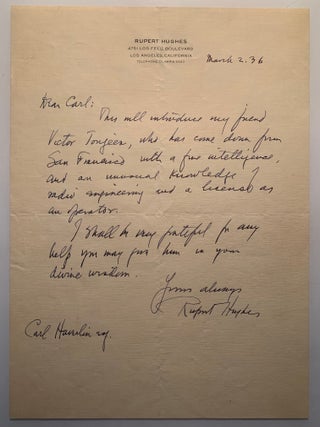 RUPERT HUGHES
4751 LOS FELIZ BOULEVARD
LOS ANGELES, CALIFORNIA
March 2. 36
Dear Carl:
This will introduce my friend
Victor who has come down from
San Francisco with a fine intelligence,
and an unusual knowledge of
radio engineering and a license as
an operator.
I shall be very grateful for any
help you may give him in your
divine wisdom.
Yours always
Rupert Hughes
Carl Haverlin esq.